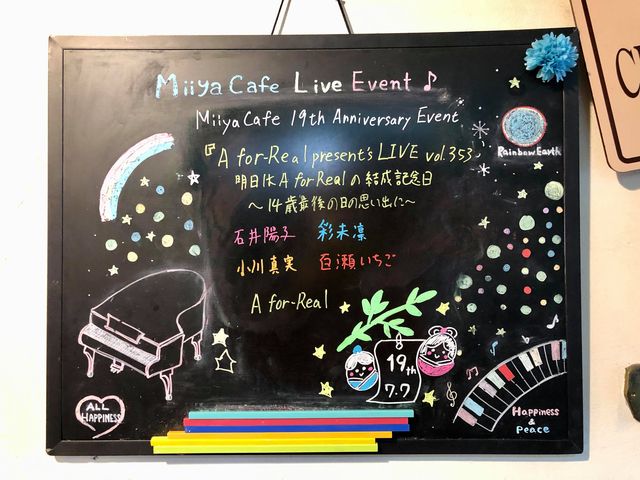 Miiya Cafe Live Event ♪
Miiya Cafe 19th Anniversary Event
『A for-Real present's LIVE vol.353
明日はA for Realの結成記念日
～14歳最後の日の思い出に～
石井陽子 彩未凛
小川真実 百瀬いちご
A for-Real
Rainbow Earth
19th
7.7
ALL
HAPPINESS
Happiness
&
Peace